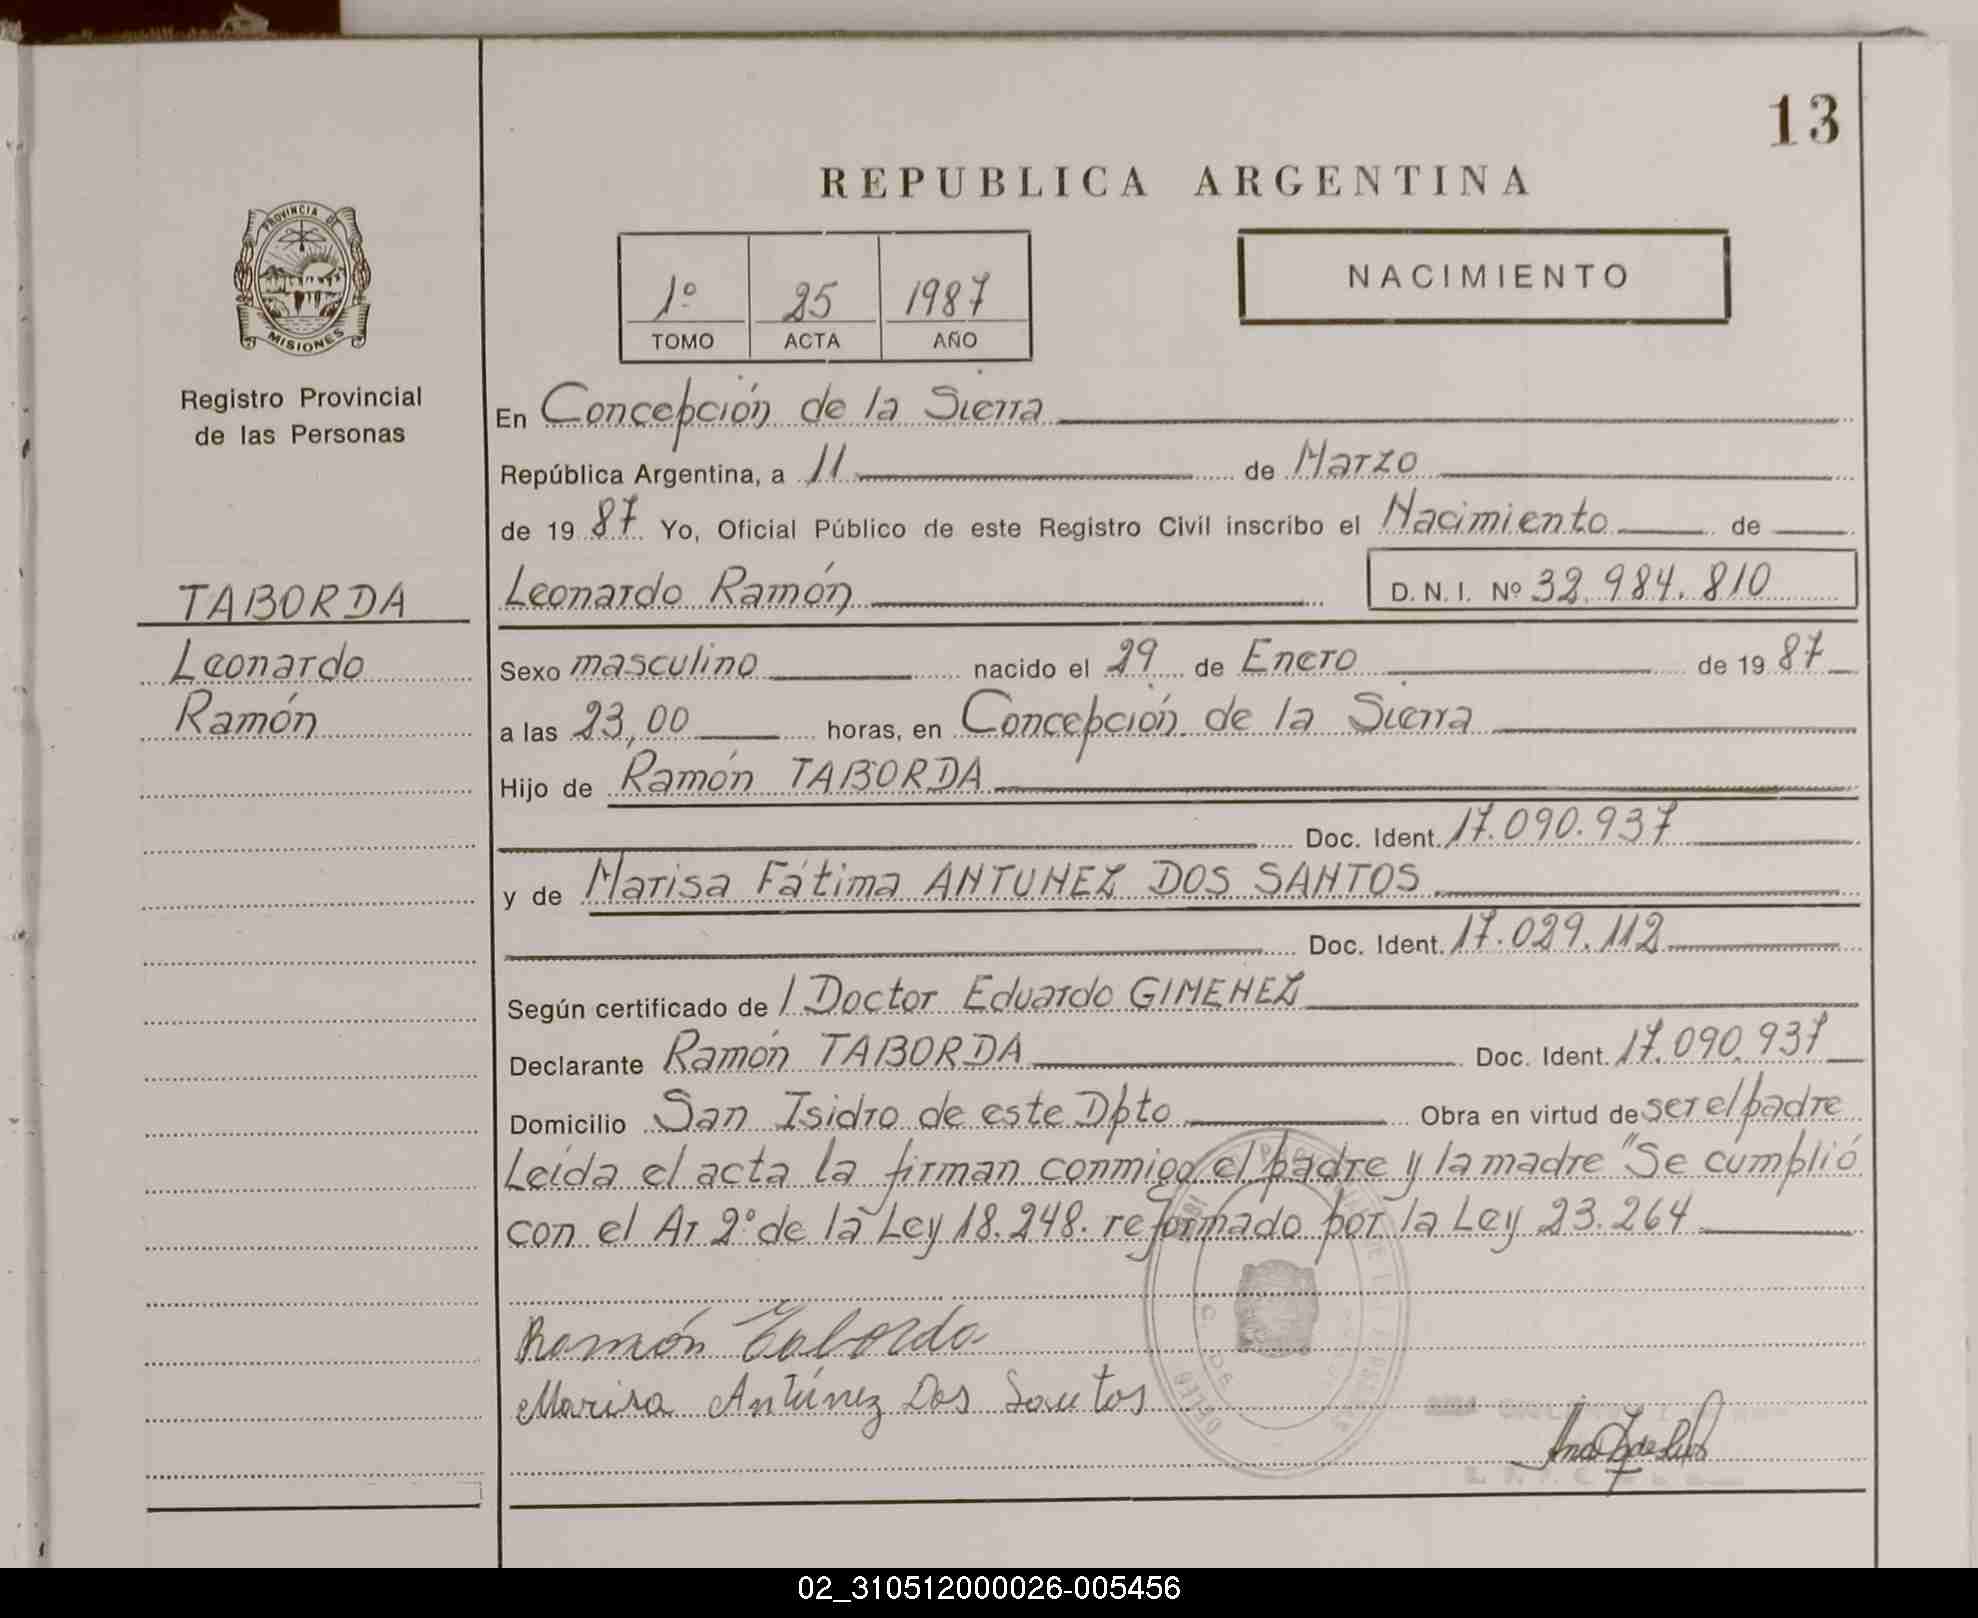 13
REPUBLICA ARGENTINA
PROVINCIA DE
MISIONES
Registro Provincial
de las Personas
1º 25 1987
TOMO ACTA AÑO
NACIMIENTO
En Concepción de la Sierra
República Argentina, a 11 de Marzo
de 19 87 Yo, Oficial Público de este Registro Civil inscribo el Nacimiento de
TABORDA
Leonardo
Ramón
Leonardo Ramón D. N. I. Nº 32.984.810
Sexo masculino nacido el 29 de Enero de 19 87
a las 23,00 horas, en Concepción de la Sierra
Hijo de Ramón TABORDA
Doc. Ident. 17.090.937
y de Marisa Fátima ANTUNEZ DOS SANTOS
Doc. Ident. 17.029.112
Según certificado de l Doctor Eduardo GIMENEZ
Declarante Ramón TABORDA Doc. Ident. 17.090.937
Domicilio San Isidro de este Dpto Obra en virtud de ser el padre
Leída el acta la firman conmigo el padre y la madre "Se cumplió
con el Ar 2º de la Ley 18.248. reformado por la Ley 23.264
Ramón Taborda
Marisa Antúnez Dos Santos
02_310512000026-005456